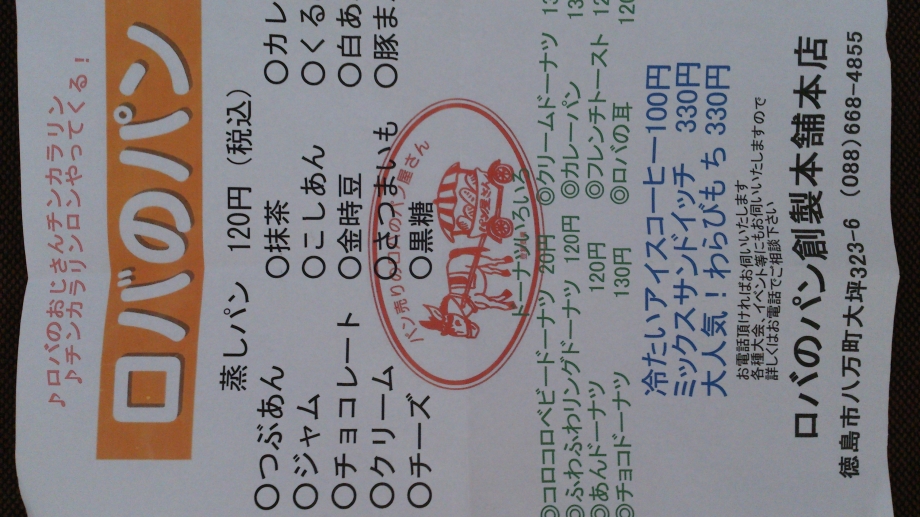 ♪ロバのおじさんチンカラリン
♪チンカラリンロンやってくる!
ロバのパン
蒸しパン 120円(税込)
○つぶあん ○抹茶 ○カレ
○ジャム ○こしあん ○くる
○チョコレート ○金時豆 ○白あ
○クリーム ○さつまいも ○豚ま
○チーズ ○黒糖
パン売りのロバのパン屋さん
ドーナツいろいろ
◎コロコロベビードーナツ 20円 ◎クリームドーナツ 13
◎ふわふわリングドーナツ 120円 ◎カレーパン 13
◎あんドーナツ 120円 ◎フレンチトースト 12
◎チョコドーナツ 130円 ◎ロバの耳 120
冷たいアイスコーヒー 100円
ミックスサンドイッチ 330円
大人気!わらびもち 330円
お電話頂ければお伺いいたします
各種大会、イベント等にもお伺いいたしますので
詳しくはお電話でご相談下さい
ロバのパン創製本舗本店
徳島市八万町大坪323-6 (088)668-4855